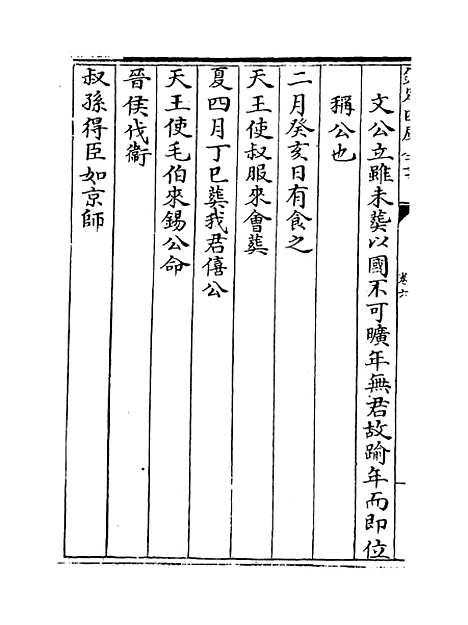 文公立雖未葬以國不可曠年無君故踰年而即位
稱公也
二月癸亥日有食之
天王使叔服來會葬
夏四月丁巳葬我君僖公
天王使毛伯來錫公命
晉侯伐衞
叔孫得臣如京師
卷六